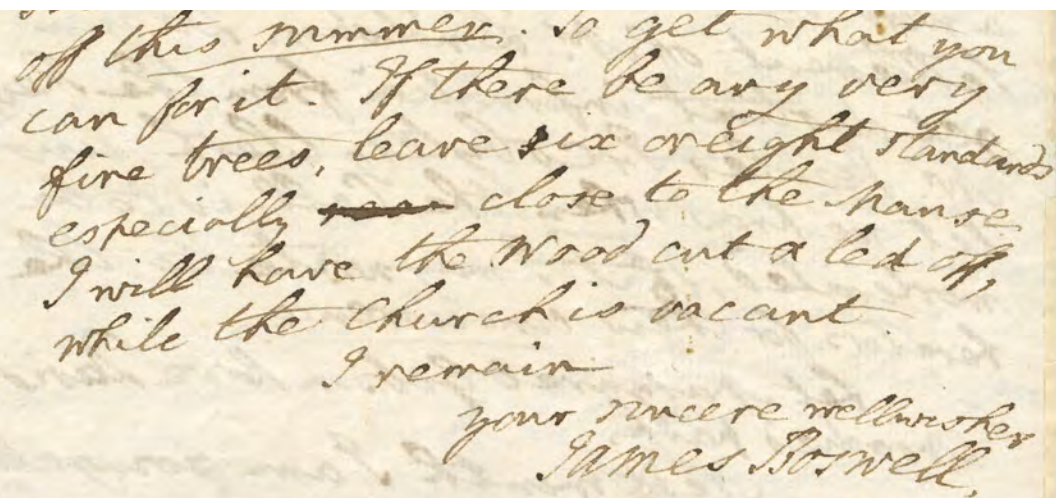 off this summer. So get what you
can for it. If there be any very
fine trees, leave six or eight standards
especially near close to the Manse
I will have the Wood cut & led off,
while the Church is vacant.
I remain
your sincere wellwisher
James Boswell.